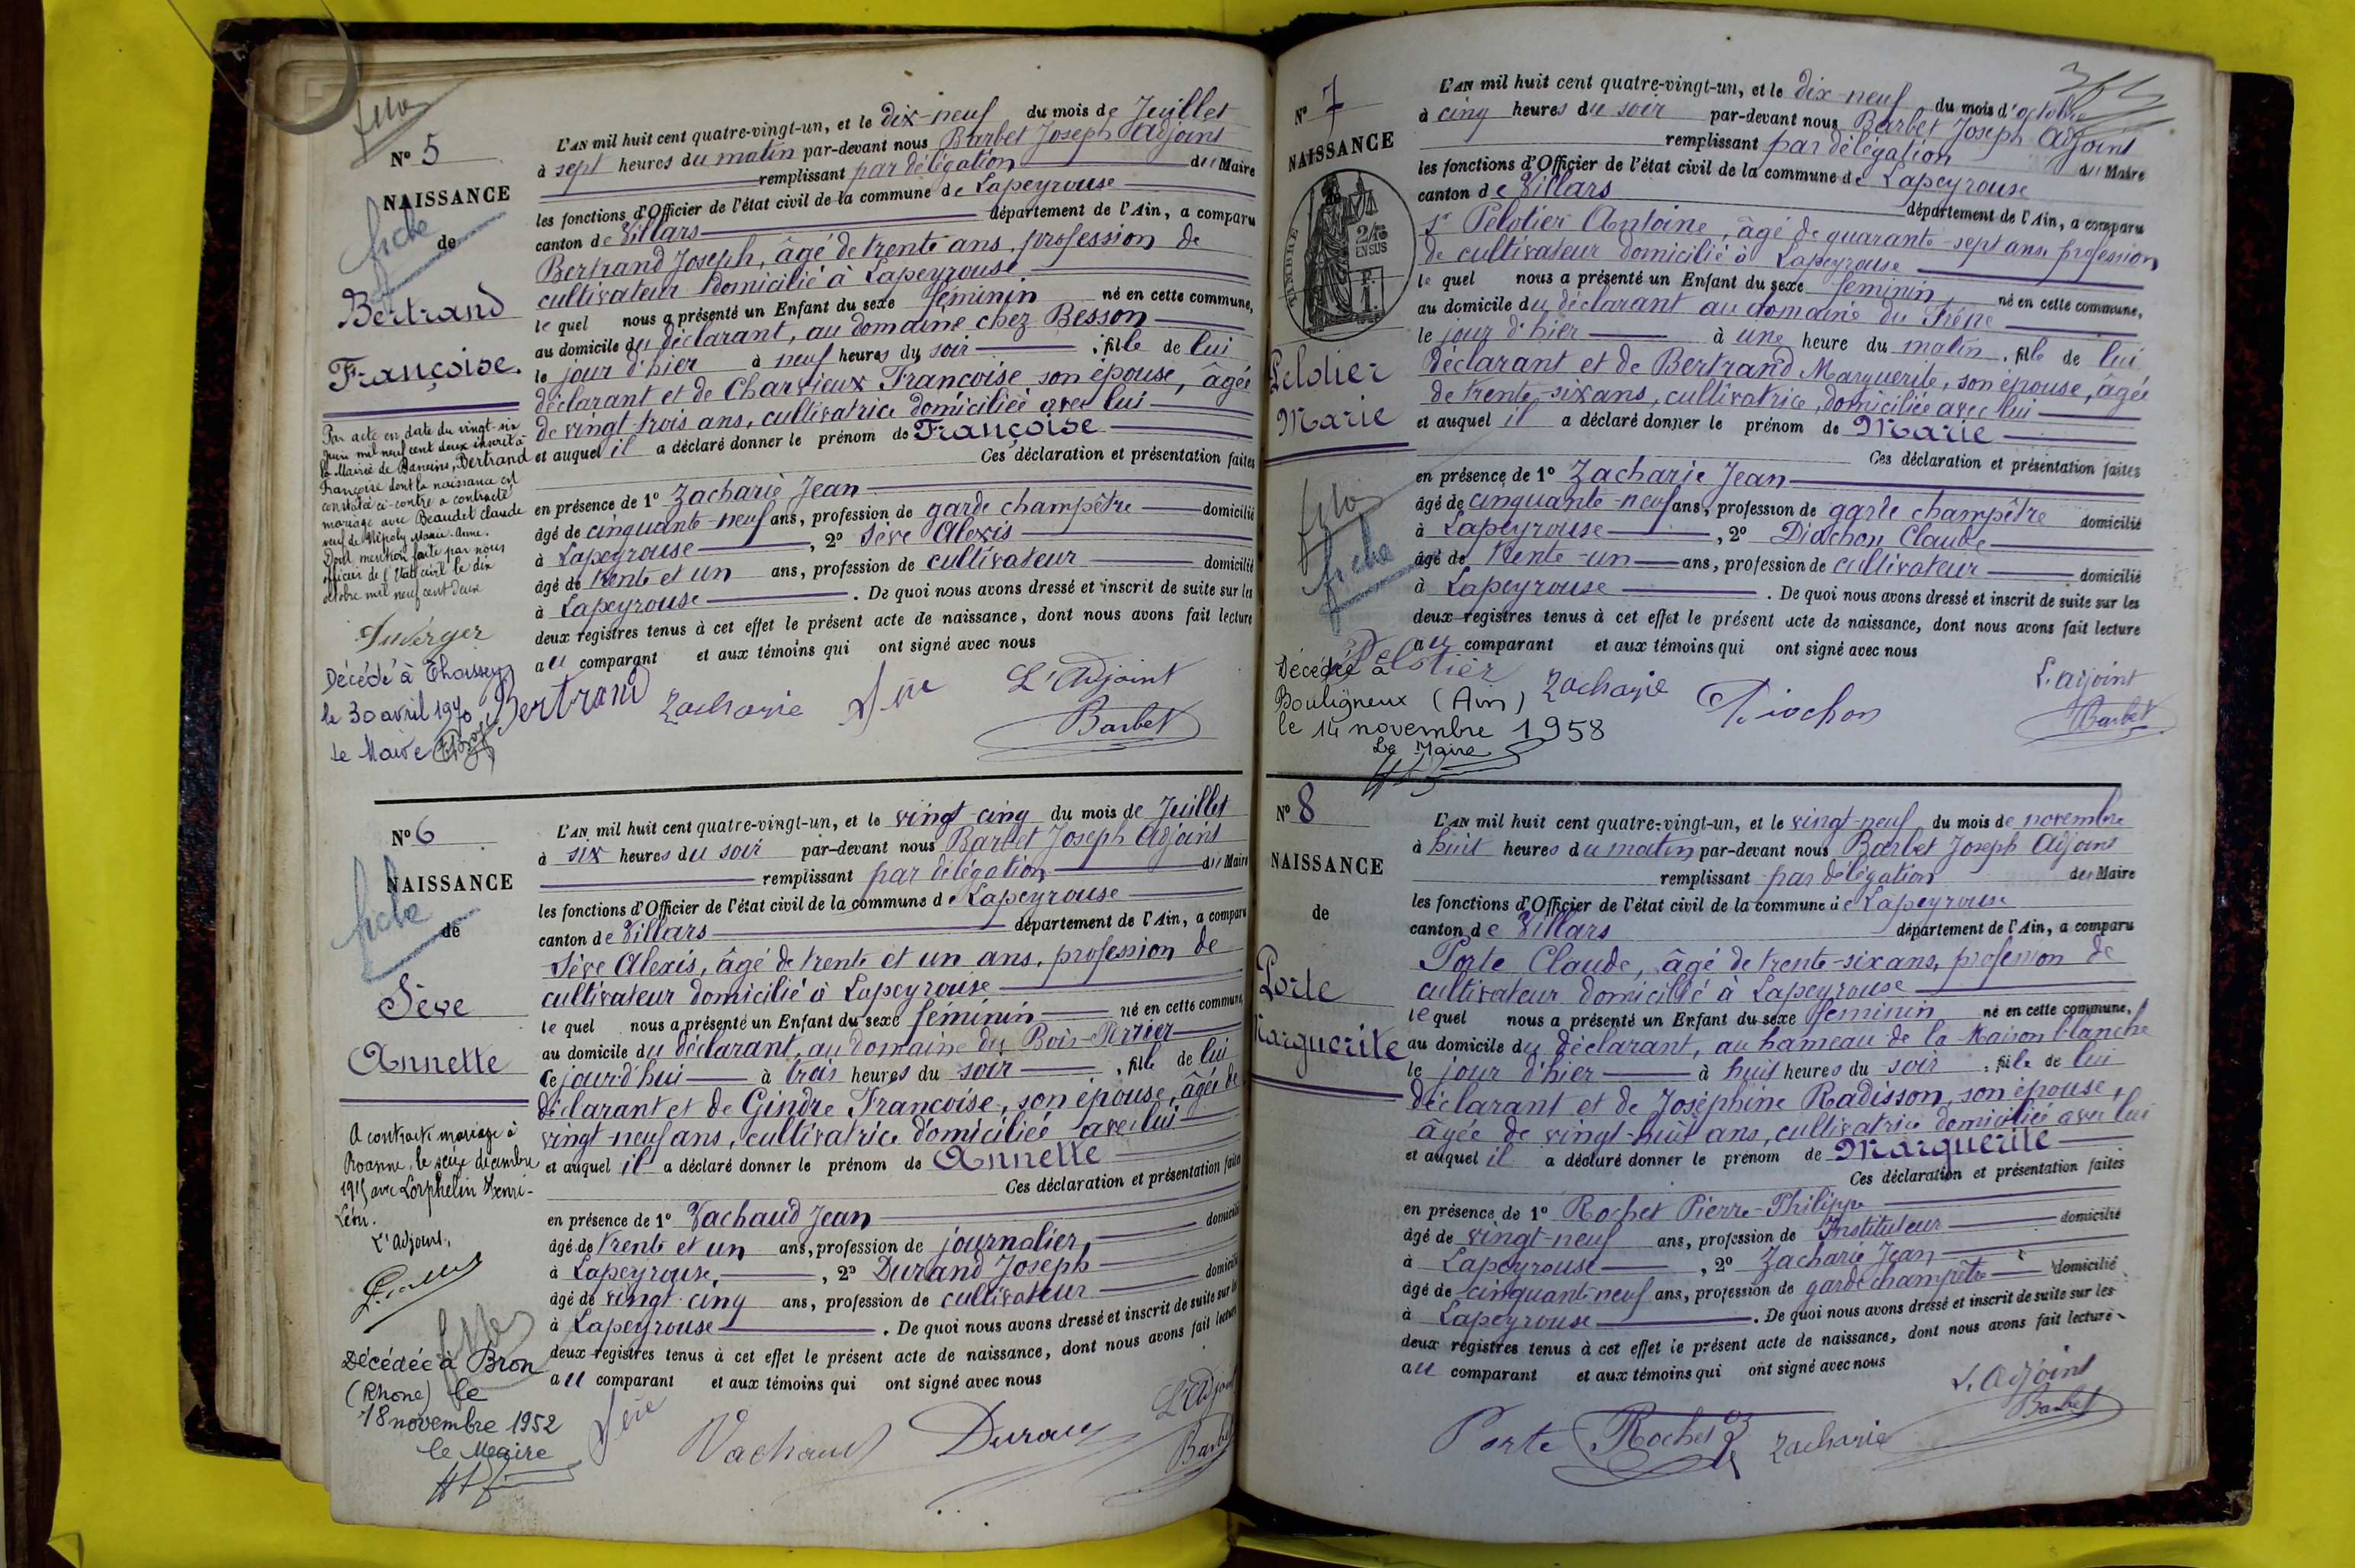 Nº 5
NAISSANCE
fiche
de
Bertrand
Françoise.
Par acte en date du vingt-six
juin mil neuf cent deux inscrit à
la Mairie de Baneins, Bertrand
Françoise dont la naissance est
constatée ci-contre a contracté
mariage avec Beaudet Claude
veuf de Marie-Anne.
Dont mention faite par nous
officier de l'Etat civil le dix
octobre mil neuf cent deux
Décédé à Thoissey
le 30 avril 1970
Le Maire
L'AN mil huit cent quatre-vingt-un, et le dix-neuf du mois de Juillet
à sept heures du matin par-devant nous Barbet Joseph Adjoint
remplissant par délégation du Maire
les fonctions d'Officier de l'état civil de la commune de Lapeyrouse
canton de Villars département de l'Ain, a comparu
Bertrand Joseph, âgé de trente ans, profession de
cultivateur domicilié à Lapeyrouse
le quel nous a présenté un Enfant du sexe féminin né en cette commune,
au domicile du déclarant, au domaine chez Besson
le jour d'hier à neuf heures du soir, fille de lui
déclarant et de Charvieux Françoise, son épouse, âgée
de vingt-trois ans, cultivatrice domiciliée avec lui
et auquel il a déclaré donner le prénom de Françoise
Ces déclaration et présentation faites
en présence de 1º Zacharie Jean
âgé de cinquante-neuf ans, profession de garde champêtre domicilié
à Lapeyrouse, 2º Sève Alexis
âgé de trente et un ans, profession de cultivateur domicilié
à Lapeyrouse. De quoi nous avons dressé et inscrit de suite sur les
deux registres tenus à cet effet le présent acte de naissance, dont nous avons fait lecture
au comparant et aux témoins qui ont signé avec nous
Bertrand Zacharie Sève L'Adjoint
Barbet
Nº 6
NAISSANCE
fiche
de
Sève
Annette
A contracté mariage à
Roanne, le seize décembre
1915 avec Lorphelin Henri-
Léon.
L'Adjoint,
Décédée à Bron
(Rhone) le
18 novembre 1952
le Maire
L'AN mil huit cent quatre-vingt-un, et le vingt-cinq du mois de Juillet
à six heures du soir par-devant nous Barbet Joseph Adjoint
remplissant par délégation du Maire
les fonctions d'Officier de l'état civil de la commune de Lapeyrouse
canton de Villars département de l'Ain, a comparu
Sève Alexis, âgé de trente et un ans, profession de
cultivateur domicilié à Lapeyrouse
le quel nous a présenté un Enfant du sexe féminin né en cette commune,
au domicile du déclarant, au domaine du Bois-Perrier
ce jourd'hui à trois heures du soir, fille de lui
déclarant et de Gindre Françoise, son épouse, âgée de
vingt-neuf ans, cultivatrice domiciliée avec lui
et auquel il a déclaré donner le prénom de Annette
Ces déclaration et présentation faites
en présence de 1º Vachaud Jean
âgé de trente et un ans, profession de journalier, domicilié
à Lapeyrouse, 2º Durand Joseph
âgé de vingt-cinq ans, profession de cultivateur domicilié
à Lapeyrouse. De quoi nous avons dressé et inscrit de suite sur les
deux registres tenus à cet effet le présent acte de naissance, dont nous avons fait lecture
au comparant et aux témoins qui ont signé avec nous
Sève Vachaud Durand L'Adjoint
Barbet
Nº 7
NAISSANCE
TIMBRE
2/10 EN SUS
Pelotier
Marie
fiche
Décédée à
Bouligneux (Ain)
le 14 novembre 1958
Le Maire
L'AN mil huit cent quatre-vingt-un, et le dix-neuf du mois d'octobre
à cinq heures du soir par-devant nous Barbet Joseph Adjoint
remplissant par délégation du Maire
les fonctions d'Officier de l'état civil de la commune de Lapeyrouse
canton de Villars département de l'Ain, a comparu
Sr Pelotier Antoine, âgé de quarante-sept ans, profession
de cultivateur domicilié à Lapeyrouse
le quel nous a présenté un Enfant du sexe féminin, né en cette commune,
au domicile du déclarant au domaine du Frêne
le jour d'hier à une heure du matin, fille de lui
déclarant et de Bertrand Marguerite, son épouse, âgée
de trente-six ans, cultivatrice, domiciliée avec lui
et auquel il a déclaré donner le prénom de Marie
Ces déclaration et présentation faites
en présence de 1º Zacharie Jean
âgé de cinquante-neuf ans, profession de garde champêtre domicilié
à Lapeyrouse, 2º Diochon Claude
âgé de trente-un ans, profession de cultivateur domicilié
à Lapeyrouse. De quoi nous avons dressé et inscrit de suite sur les
deux registres tenus à cet effet le présent acte de naissance, dont nous avons fait lecture
au comparant et aux témoins qui ont signé avec nous
Pelotier Zacharie Diochon L'adjoint
Barbet
Nº 8
NAISSANCE
de
Porte
Marguerite
L'AN mil huit cent quatre-vingt-un, et le vingt-neuf du mois de novembre
à huit heures du matin par-devant nous Barbet Joseph Adjoint
remplissant par délégation du Maire
les fonctions d'Officier de l'état civil de la commune de Lapeyrouse
canton de Villars département de l'Ain, a comparu
Porte Claude, âgé de trente-six ans, profession de
cultivateur domicilié à Lapeyrouse
le quel nous a présenté un Enfant du sexe féminin né en cette commune,
au domicile du déclarant, au hameau de la Maison blanche
le jour d'hier à huit heures du soir, fille de lui
déclarant et de Joséphine Radisson, son épouse,
âgée de vingt-huit ans, cultivatrice domiciliée avec lui
et auquel il a déclaré donner le prénom de Marguerite
Ces déclaration et présentation faites
en présence de 1º Rochet Pierre-Philippe
âgé de vingt-neuf ans, profession de Instituteur domicilié
à Lapeyrouse, 2º Zacharie Jean
âgé de cinquante neuf ans, profession de garde champêtre domicilié
à Lapeyrouse. De quoi nous avons dressé et inscrit de suite sur les
deux registres tenus à cet effet le présent acte de naissance, dont nous avons fait lecture
au comparant et aux témoins qui ont signé avec nous
Porte Rochet Zacharie L'Adjoint
Barbet